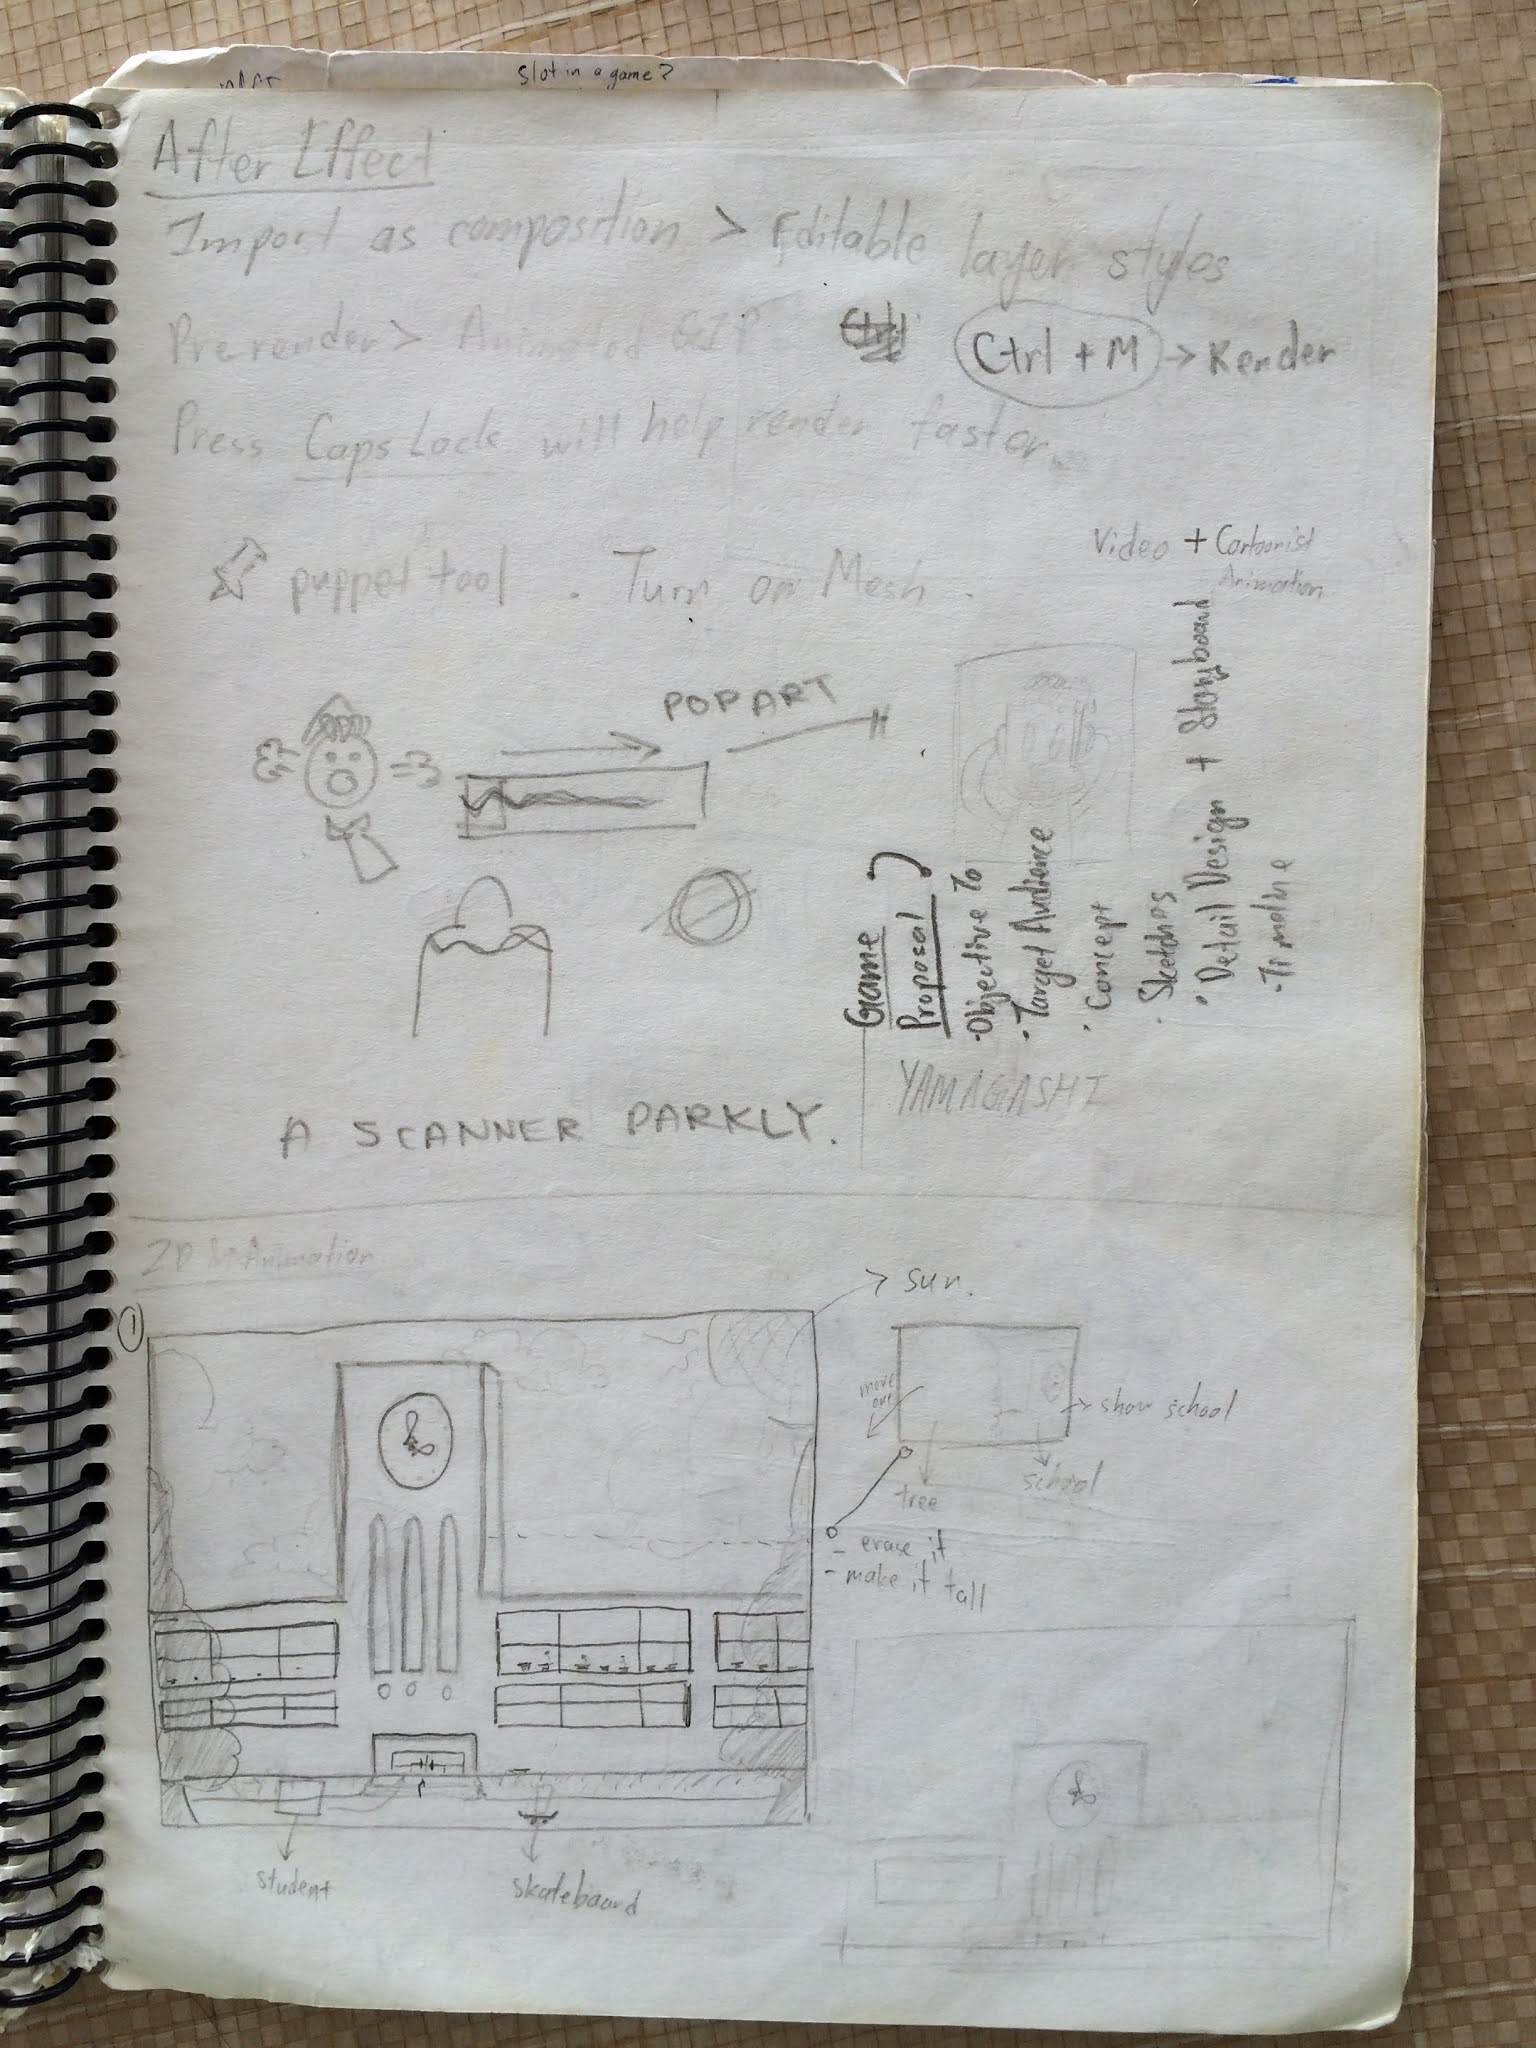 Slot in a game?
After Effect
Import as composition > Editable layer styles
Prerender > Animated GIF
Ctrl + M → Render
Press Caps Lock will help render faster.
puppet tool . Turn on Mesh .
Video + Cartoonist
Animation
POP ART
Game
Proposal
· Objective To
· Target Audience
· Concept
· Sketches
· Detail Design + Storyboard
· Timeline
YAMAGASHI
A SCANNER DARKLY.
2D & Animation
1
→ sun.
move
out
→ show school
tree
school
- erase it
- make it tall
student
skateboard